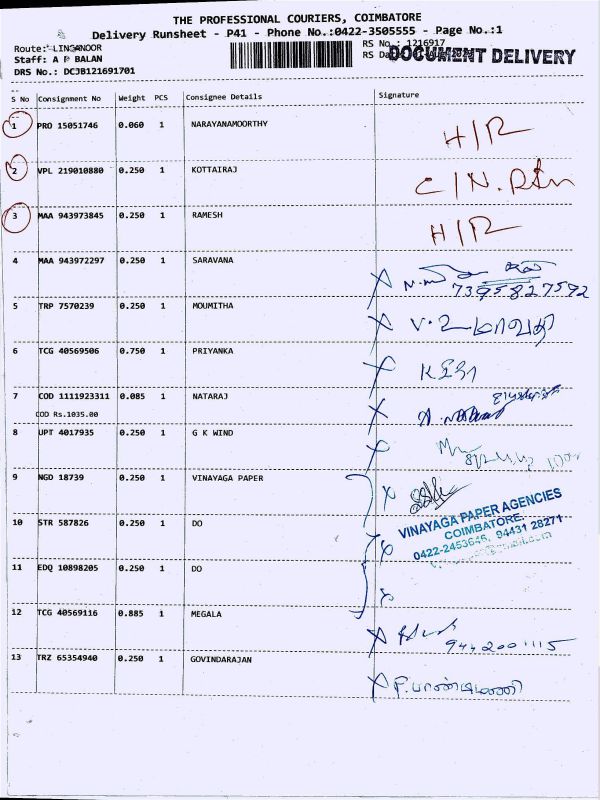 THE PROFESSIONAL COURIERS, COIMBATORE
Delivery Runsheet - P41 - Phone No.:0422-3505555 - Page No.:1
Route: LINGANOOR
RS No.: 1216917
Staff: A P BALAN
RS
DOCUMENT DELIVERY
DRS No.: DCJB121691701
S No Consignment No Weight PCS Consignee Details Signature
1 PRO 15051746 0.060 1 NARAYANAMOORTHY H/R
2 VPL 219010880 0.250 1 KOTTAIRAJ
3 MAA 943973845 0.250 1 RAMESH H/R
4 MAA 943972297 0.250 1 SARAVANA
7395827592
5 TRP 7570239 0.250 1 MOUMITHA
6 TCG 40569506 0.750 1 PRIYANKA
7 COD 1111923311 0.085 1 NATARAJ
COD Rs.1035.00
8 UPT 4017935 0.250 1 G K WIND
9 NGD 18739 0.250 1 VINAYAGA PAPER
VINAYAGA PAPER AGENCIES
COIMBATORE.
0422-2453645, 94431 28271
10 STR 587826 0.250 1 DO
11 EDQ 10898205 0.250 1 DO
12 TCG 40569116 0.885 1 MEGALA
9442001115
13 TRZ 65354940 0.250 1 GOVINDARAJAN